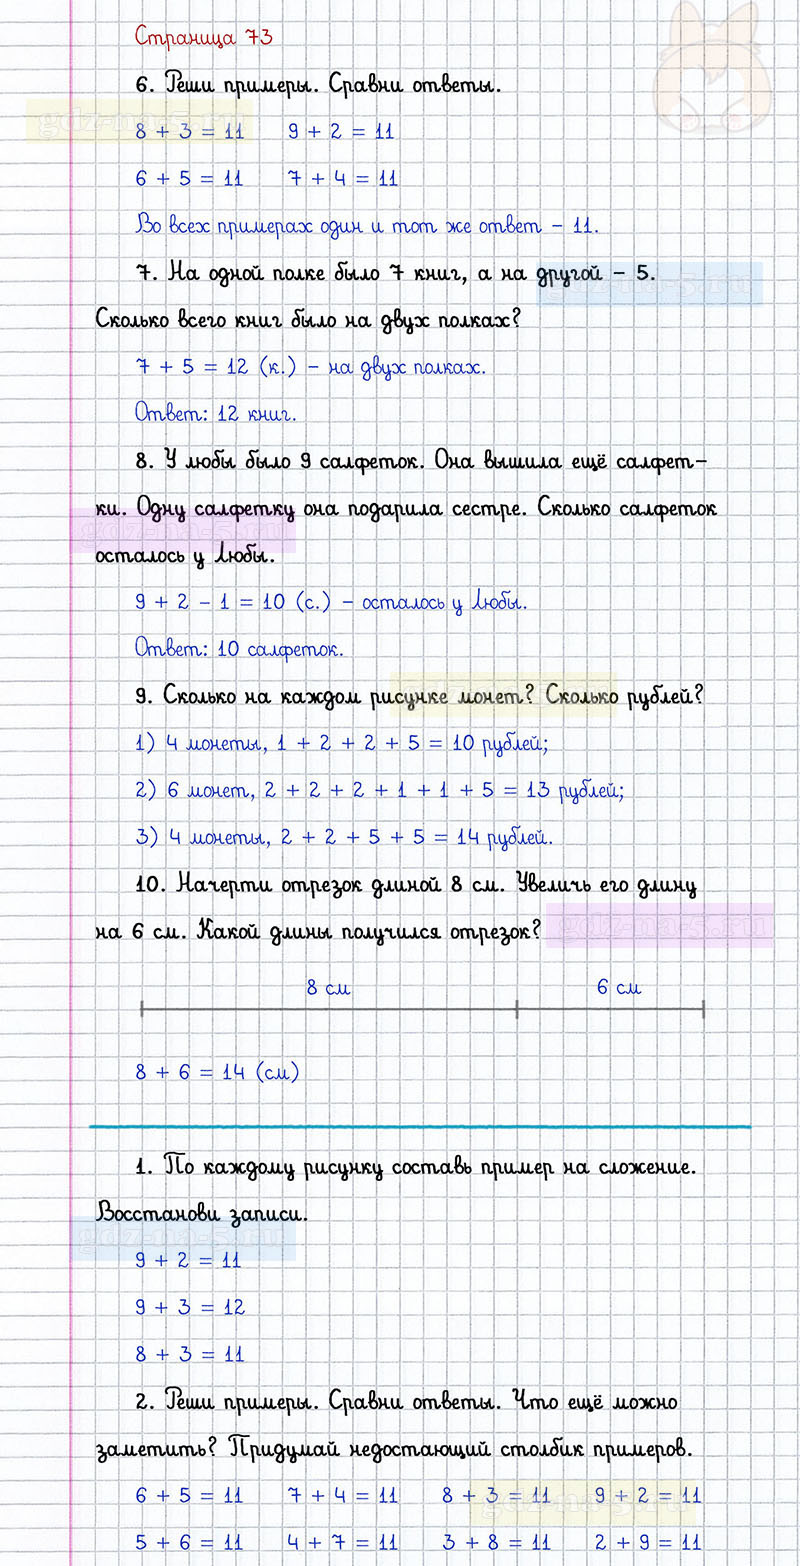 Страница 73
6. Реши примеры. Сравни ответы.
gdz-na-5.ru
8 + 3 = 11 9 + 2 = 11
6 + 5 = 11 7 + 4 = 11
Во всех примерах один и тот же ответ – 11.
7. На одной полке было 7 книг, а на другой – 5.
gdz-na-5.ru
Сколько всего книг было на двух полках?
7 + 5 = 12 (к.) – на двух полках.
Ответ: 12 книг.
8. У любы было 9 салфеток. Она вышила ещё салфет-
ки. Одну салфетку она подарила сестре. Сколько салфеток
gdz-na-5.ru
осталось у Любы.
9 + 2 – 1 = 10 (с.) – осталось у Любы.
Ответ: 10 салфеток.
9. Сколько на каждом рисунке монет? Сколько рублей?
gdz-na-5.ru
1) 4 монеты, 1 + 2 + 2 + 5 = 10 рублей;
2) 6 монет, 2 + 2 + 2 + 1 + 1 + 5 = 13 рублей;
3) 4 монеты, 2 + 2 + 5 + 5 = 14 рублей.
10. Начерти отрезок длиной 8 см. Увеличь его длину
на 6 см. Какой длины получился отрезок?
gdz-na-5.ru
8 см 6 см
8 + 6 = 14 (см)
1. По каждому рисунку составь пример на сложение.
Восстанови записи.
gdz-na-5.ru
9 + 2 = 11
9 + 3 = 12
8 + 3 = 11
2. Реши примеры. Сравни ответы. Что ещё можно
заметить? Придумай недостающий столбик примеров.
6 + 5 = 11 7 + 4 = 11 8 + 3 = 11 9 + 2 = 11
gdz-na-5.ru
5 + 6 = 11 4 + 7 = 11 3 + 8 = 11 2 + 9 = 11